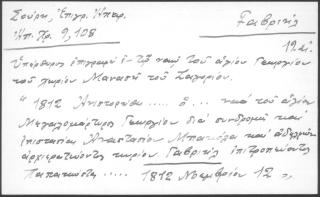 Σούρλ, Ἐπιγρ. Ἠπειρ.
Ἠπ. Χρ. 9, 108
Γαβριήλ
Ὑπέρθυρος ἐπιγραφὴ ἐν τῷ ναῷ τοῦ ἁγίου Γεωργίου
τοῦ χωρίου Μανασῆ τοῦ Ζαγορίου.
"1812 Ἀνιστορίθη ..... ὁ ... ναὸ τοῦ ἁγίου
Μεγαλομάρτυρος Γεωργίου διὰ συνδρομῆς καὶ
ἐπιστασίας Ἀναστασίου καὶ ἀδελφῶν
ἀρχιερατεύοντος κυρίου Γαβριὴλ ἐπιτροπεύοντος
Παπακώστα ..... 1812 Νοεμβρίου 12 "